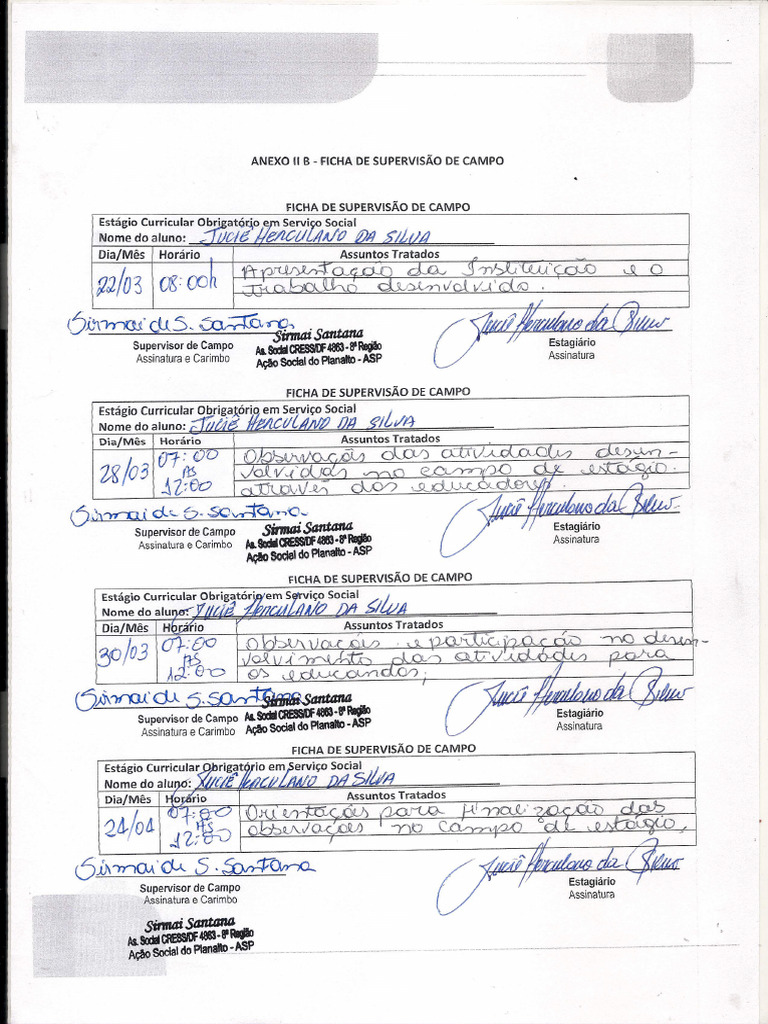 ANEXO II B - FICHA DE SUPERVISÃO DE CAMPO
FICHA DE SUPERVISÃO DE CAMPO
Estágio Curricular Obrigatório em Serviço Social
Nome do aluno: JUCIÊ HERCULANO DA SILVA
Dia/Mês Horário Assuntos Tratados
22/03 08:00h Apresentação da Instituição e o
trabalho desenvolvido.
Sirmai de S. Santana Juciê Herculano da Silva
Supervisor de Campo Sirmai Santana Estagiário
Assinatura e Carimbo As. Social CRESS/DF 4863 - 8ª Região Assinatura
Ação Social do Planalto - ASP
FICHA DE SUPERVISÃO DE CAMPO
Estágio Curricular Obrigatório em Serviço Social
Nome do aluno: JUCIÊ HERCULANO DA SILVA
Dia/Mês Horário Assuntos Tratados
28/03 07:00 Observação das atividades desen-
ÀS volvidas no campo de estágio.
12:00 através dos educadores.
Sirmai de S. Santana Juciê Herculano da Silva
Supervisor de Campo Sirmai Santana Estagiário
Assinatura e Carimbo As. Social CRESS/DF 4863 - 8ª Região Assinatura
Ação Social do Planalto - ASP
FICHA DE SUPERVISÃO DE CAMPO
Estágio Curricular Obrigatório em Serviço Social
Nome do aluno: JUCIÊ HERCULANO DA SILVA
Dia/Mês Horário Assuntos Tratados
30/03 07:00 Observação e participação no desen-
ÀS volvimento das atividades para
12:00 os educandos;
Sirmai de S. Santana Juciê Herculano da Silva
Supervisor de Campo Sirmai Santana Estagiário
Assinatura e Carimbo As. Social CRESS/DF 4863 - 8ª Região Assinatura
Ação Social do Planalto - ASP
FICHA DE SUPERVISÃO DE CAMPO
Estágio Curricular Obrigatório em Serviço Social
Nome do aluno: JUCIÊ HERCULANO DA SILVA
Dia/Mês Horário Assuntos Tratados
24/04 07:00 Orientação para finalização das
ÀS observações no campo de estágio,
12:00
Sirmai de S. Santana Juciê Herculano da Silva
Supervisor de Campo Estagiário
Assinatura e Carimbo Assinatura
Sirmai Santana
As. Social CRESS/DF 4863 - 8ª Região
Ação Social do Planalto - ASP